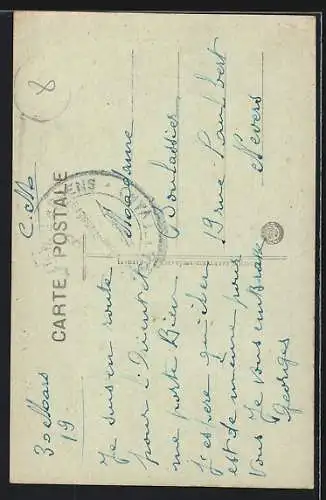 8
C. M
CARTE POSTALE
30 Mars
19
Je suis en route
pour l'Orient et
me porte Bien
j'espère qu'il en
est de même pour
vous Je vous embrasse
Georges
Madame
19 rue Paul Bert
Nevers